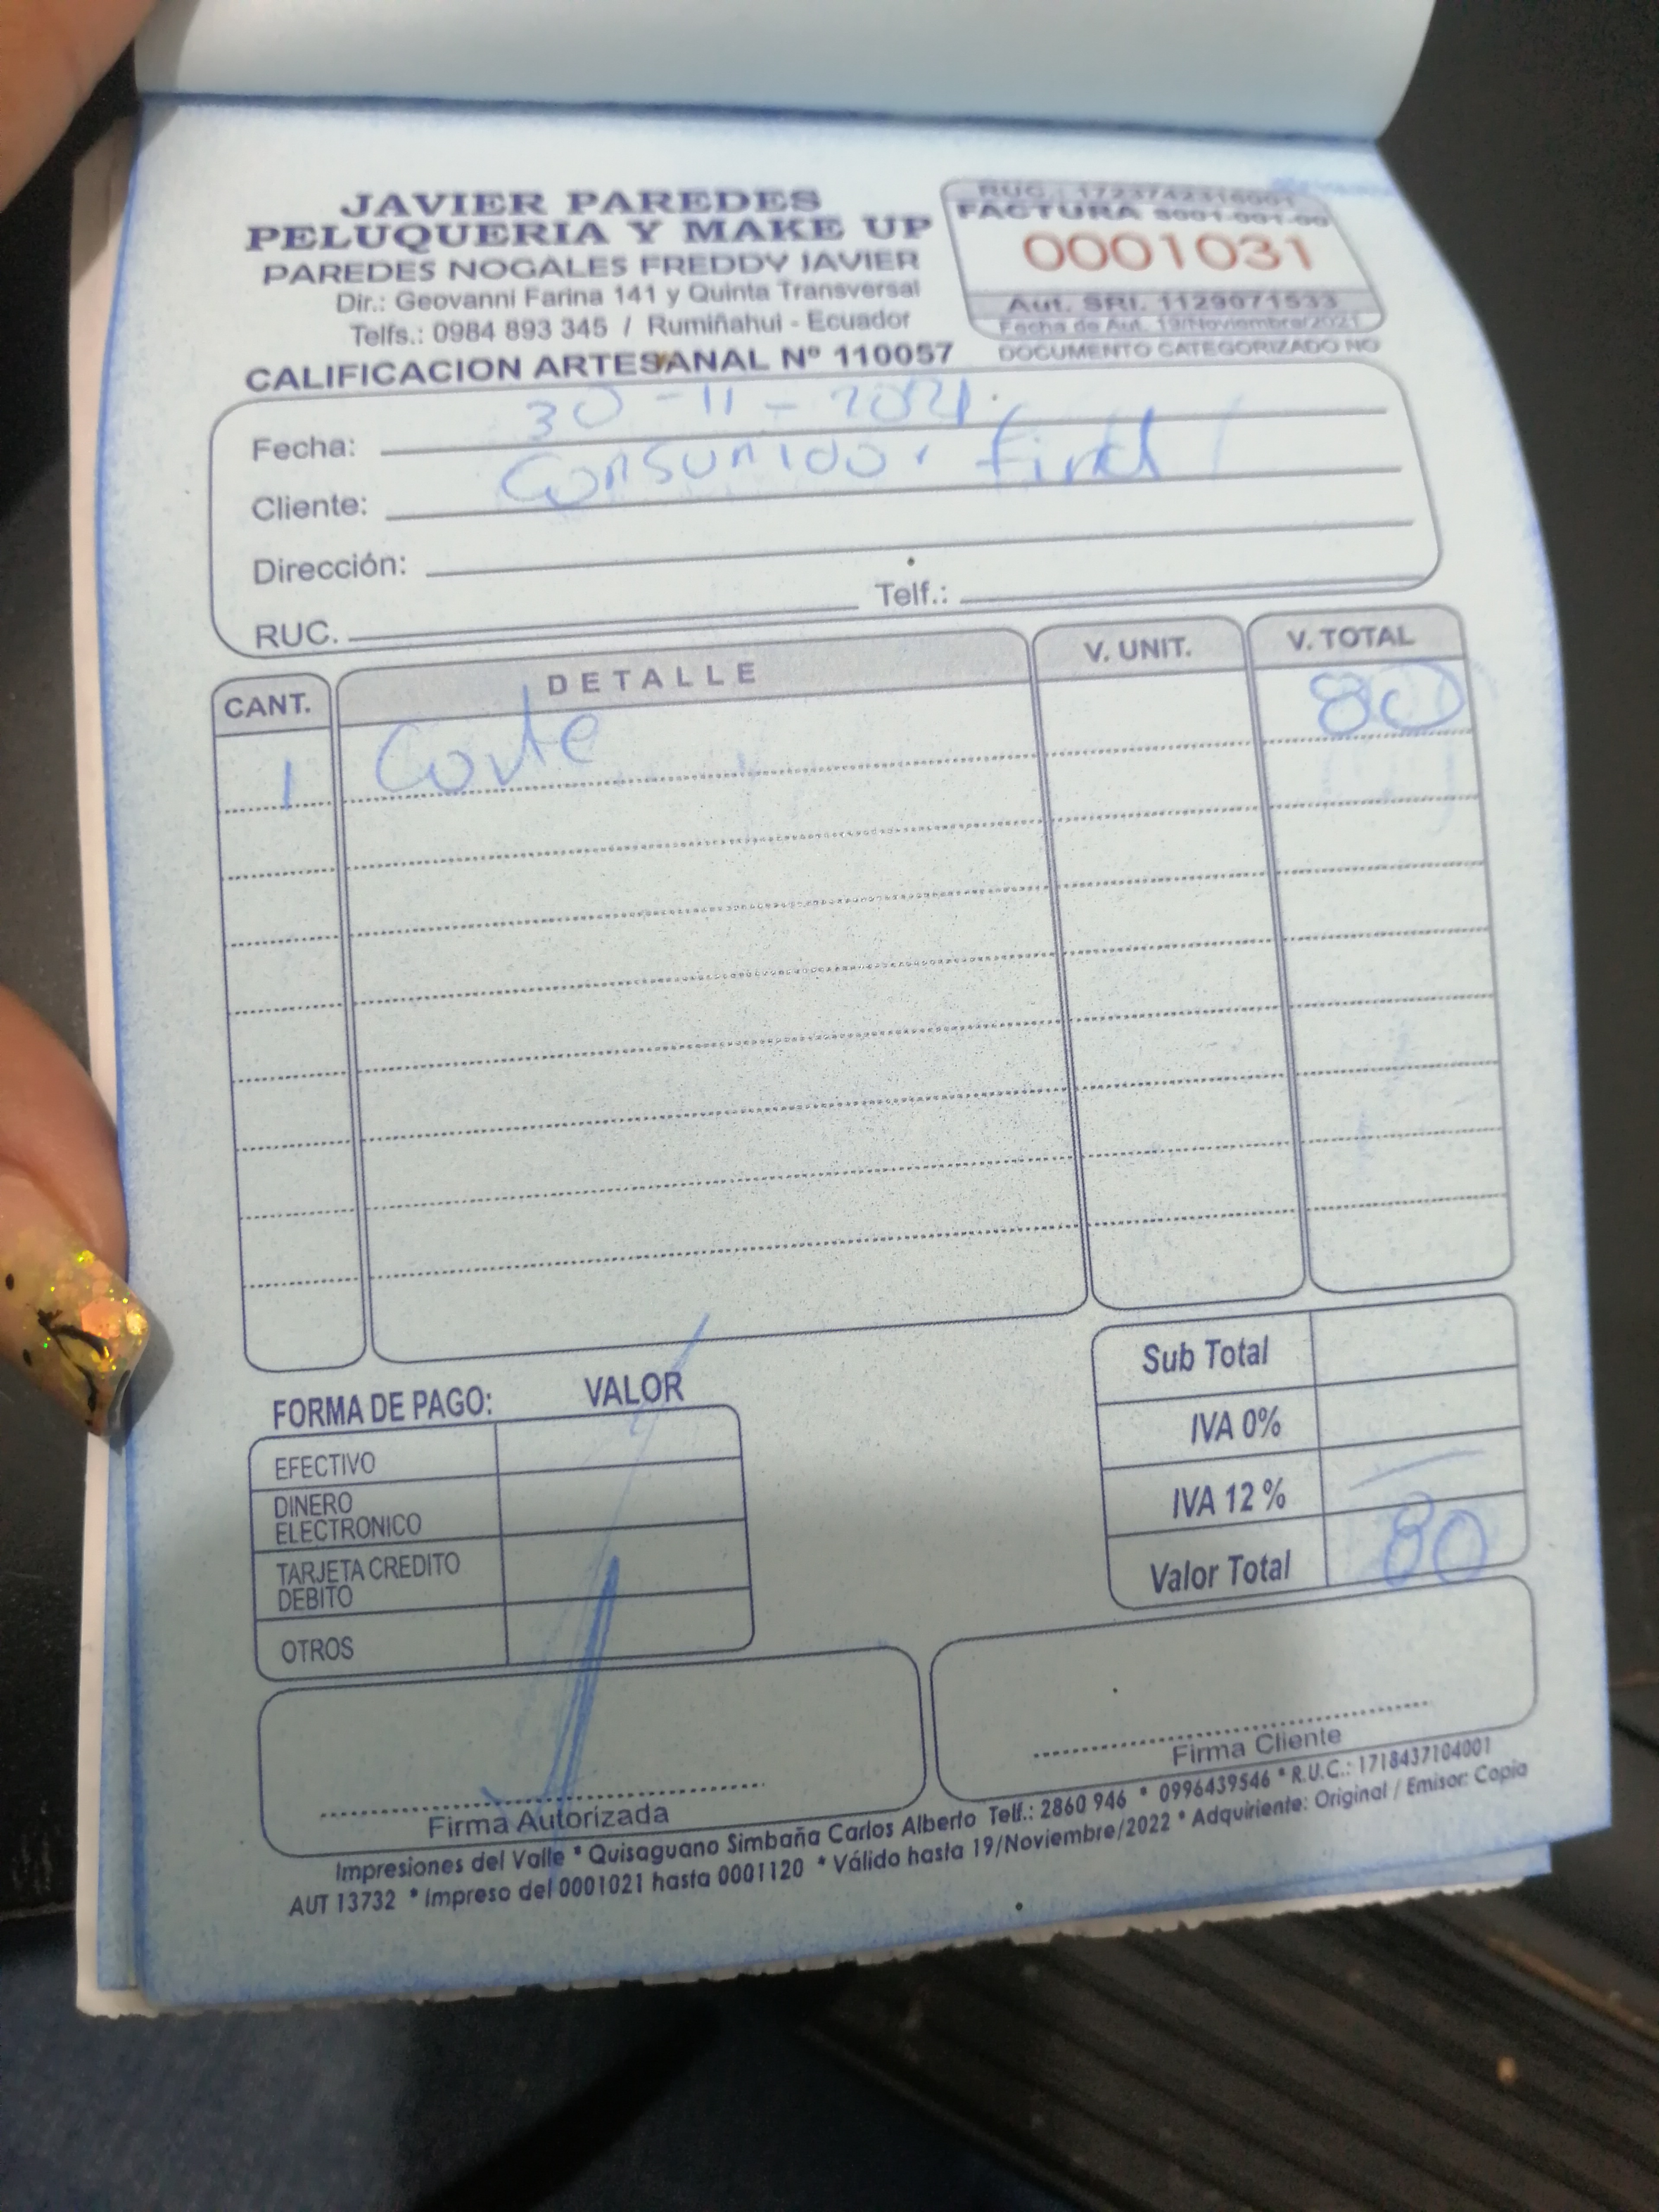 JAVIER PAREDES
PELUQUERIA Y MAKE UP
PAREDES NOGALES FREDDY JAVIER
Dir.: Geovanni Farina 141 y Quinta Transversal
Telfs.: 0984 893 345 / Rumiñahui - Ecuador
CALIFICACION ARTESANAL Nº 110057
RUC.: 1723742316001
FACTURA S001-001-00
0001031
Aut. SRI. 1129071533
Fecha de Aut. 19/Noviembre/2021
DOCUMENTO CATEGORIZADO NO
Fecha: 30-11-2021.
Cliente: Consumidor final
Dirección:
RUC. Telf.:
CANT. DETALLE V. UNIT. V. TOTAL
1 Corte 80
FORMA DE PAGO: VALOR
EFECTIVO
DINERO
ELECTRONICO
TARJETA CREDITO
DEBITO
OTROS
Sub Total
IVA 0%
IVA 12 %
Valor Total 80
Firma Autorizada
Firma Cliente
Impresiones del Valle * Quisaguano Simbaña Carlos Alberto Telf.: 2860 946 * 0996439546 * R.U.C.: 1718437104001
AUT 13732 * Impreso del 0001021 hasta 0001120 * Válido hasta 19/Noviembre/2022 * Adquiriente: Original / Emisor: Copia